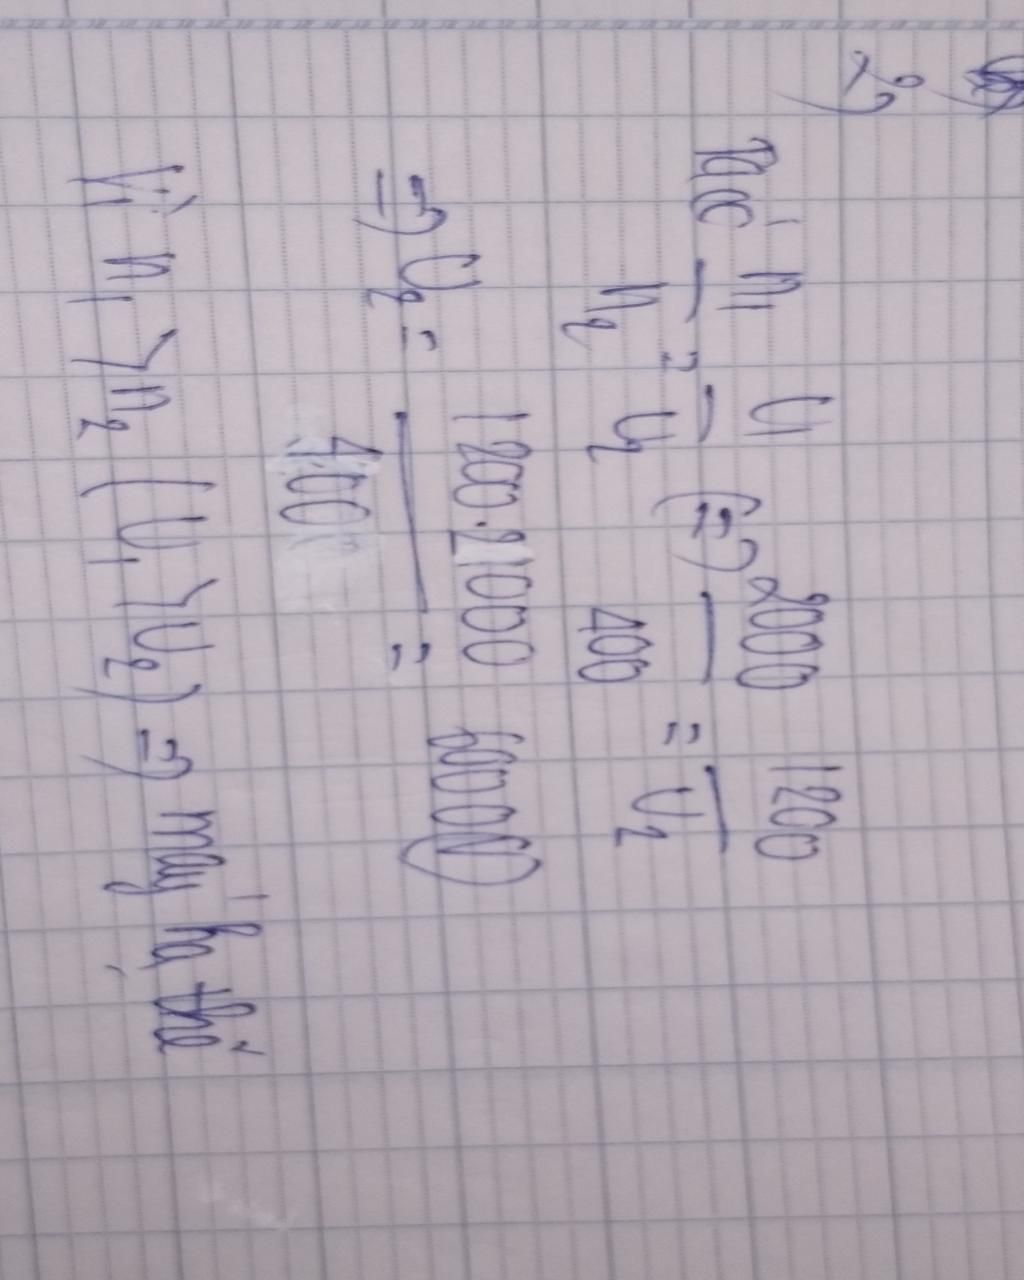 2)
Tacó n₁/n₂ = U₁/U₂ (=) 2000/400 = 1200/U₂
=) U₂ = 1200.21000/4000 = 6000 (V)
Vì n₁ > n₂ (U₁ > U₂) =) máy hạ thế